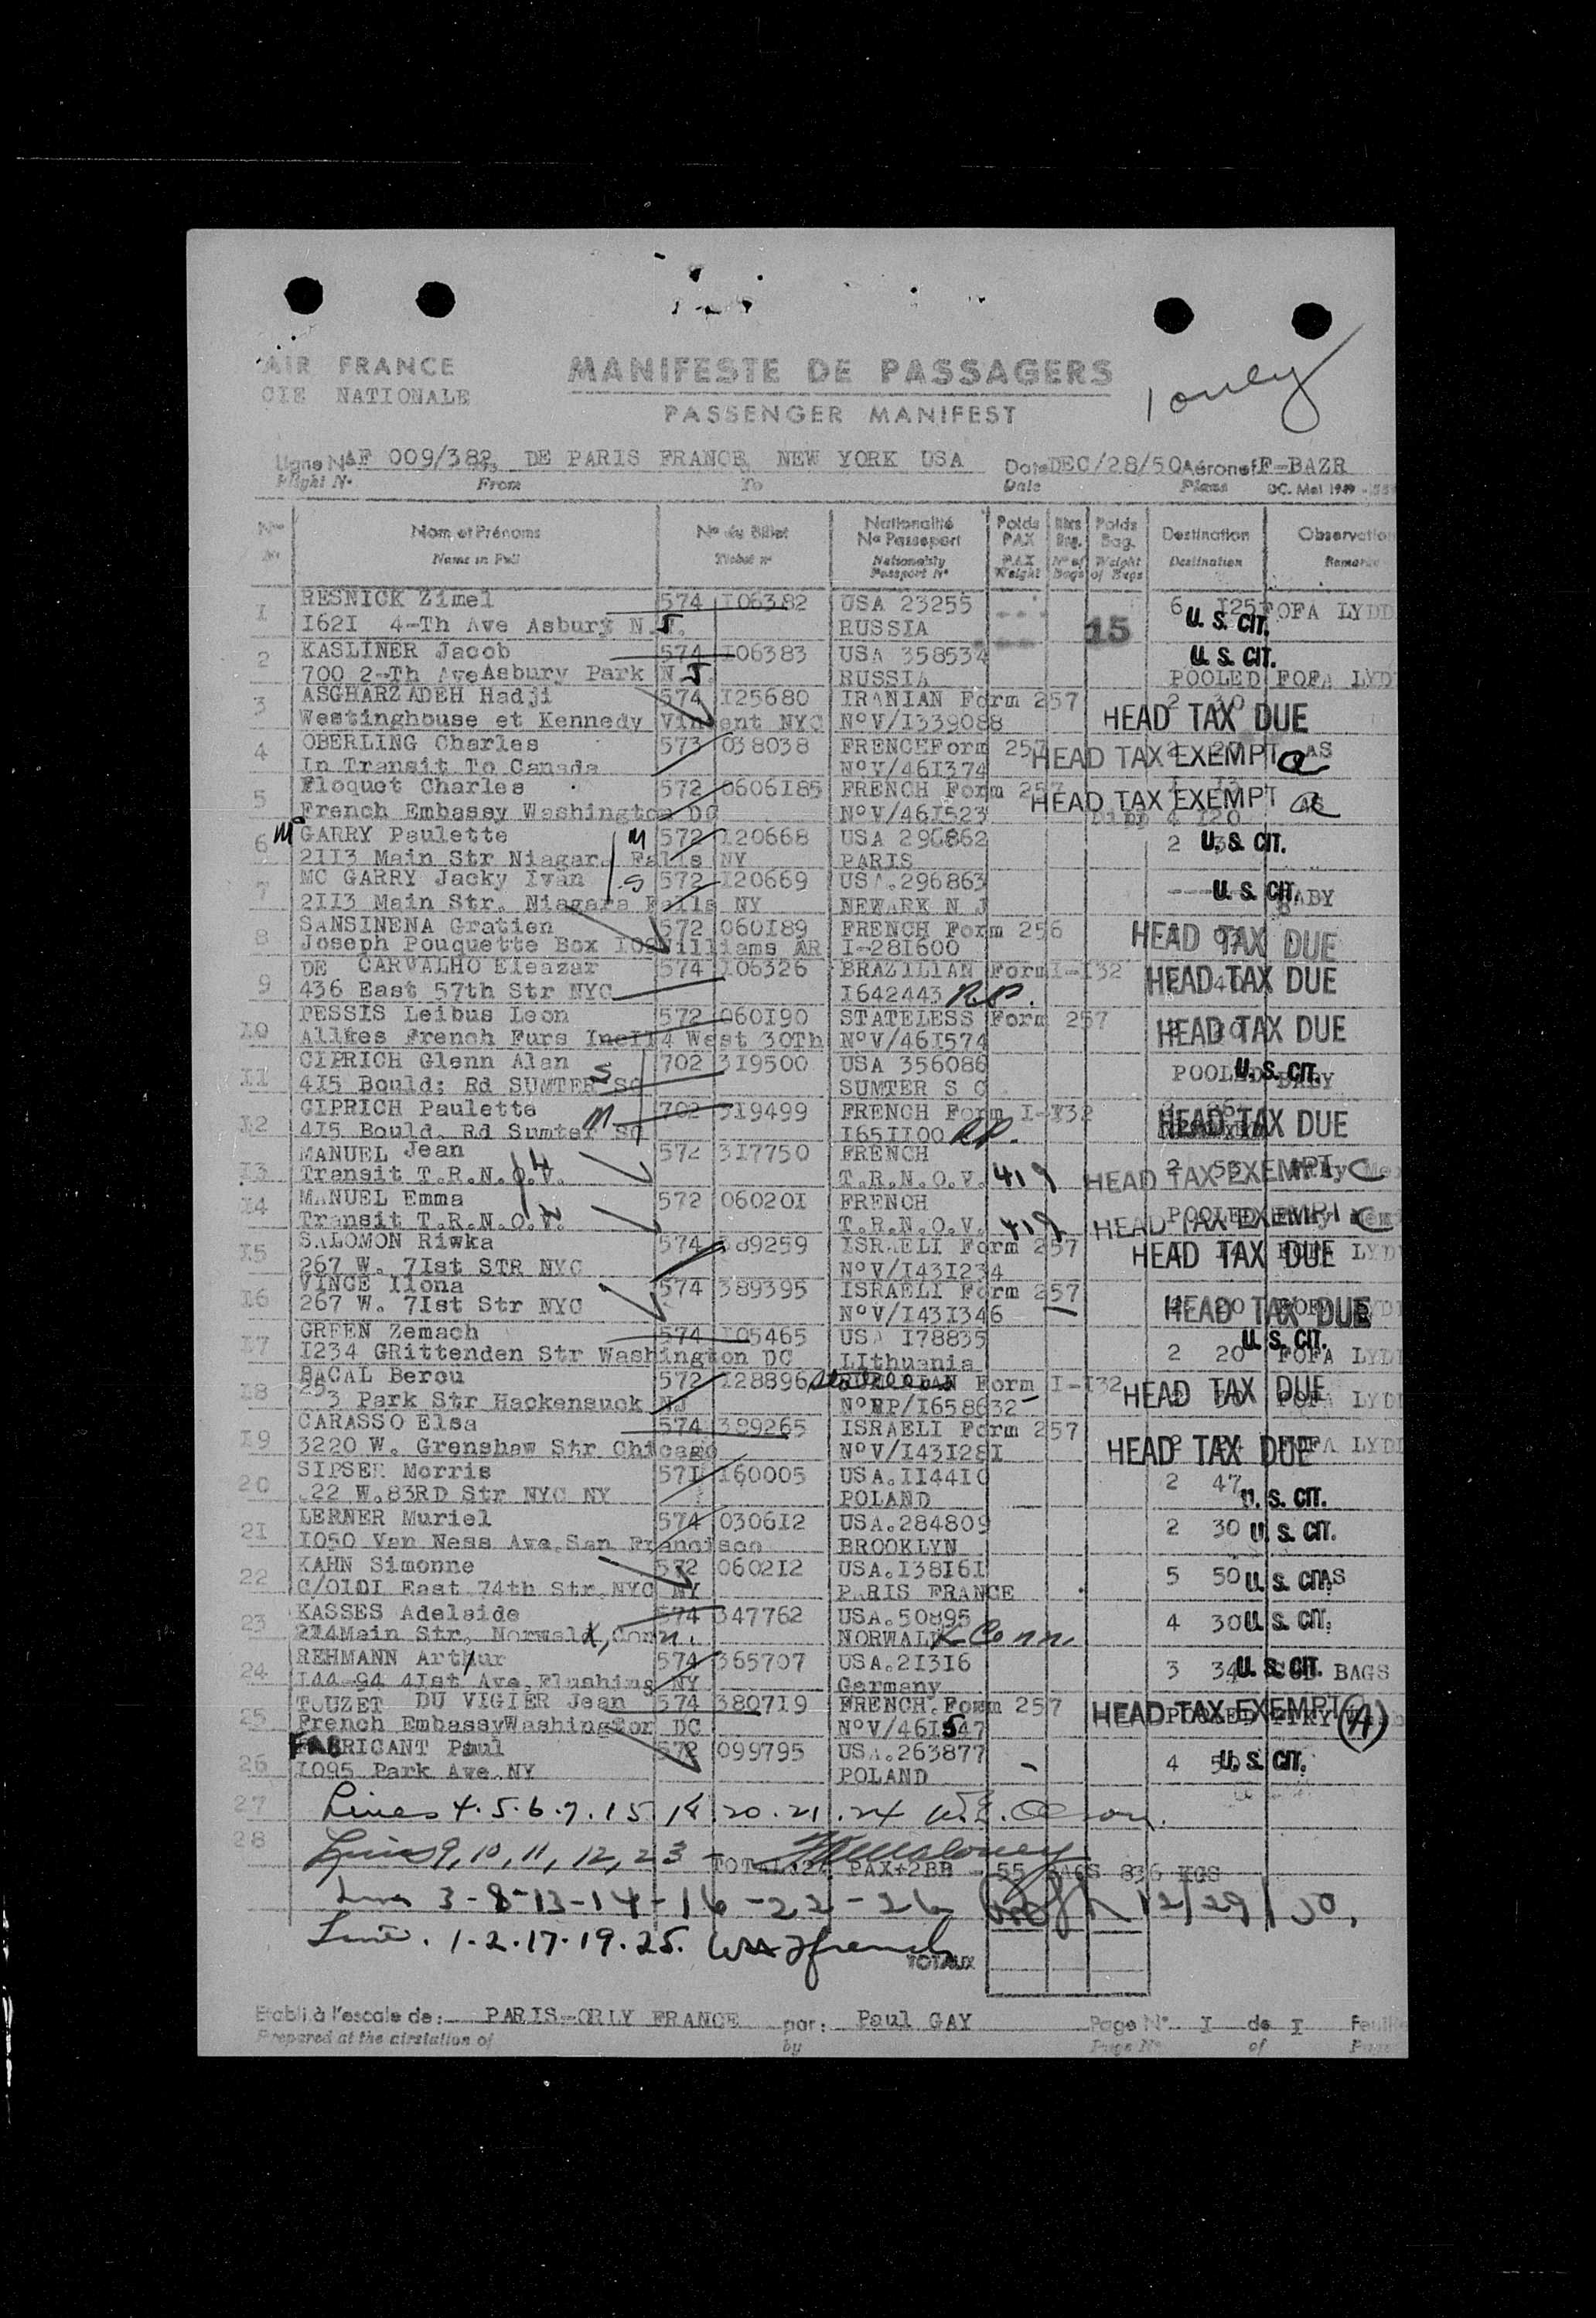 AIR FRANCE
CIE NATIONALE
MANIFESTE DE PASSAGERS
PASSENGER MANIFEST
1 only
Ligne N° AF 009/382 DE PARIS FRANCE NEW YORK USA Date DEC/28/50 Aéronef F-BAZR
Flight N° From To Date Plane DC. Mai 1949
Nom et Prénoms N° du Billet Nationalité N° Passeport Poids PAX Nbrs Bag. Poids Bag. Destination Observation
Name in Full Ticket n° Nationality Passport N° PAX Weight N° of Bags Weight of Bags Destination Remarks
1 RESNICK Zimel 574 106382 USA 23255 6 125 FOFA LYDD
1621 4-Th Ave Asbury N.J. RUSSIA 15 U. S. CIT.
2 KASLINER Jacob 574 106383 USA 358534 U. S. CIT.
700 2-Th Ave Asbury Park N.J. RUSSIA POOLED FOFA LYD
3 ASGHARZADEH Hadji 574 125680 IRANIAN Form 257 2 30
Westinghouse et Kennedy Vincent NYC N°V/1339088 HEAD TAX DUE
4 OBERLING Charles 573 038038 FRENCH Form 257 HEAD TAX EXEMPT
In Transit To Canada N°V/461374
5 Floquet Charles 572 0606185 FRENCH Form 257 HEAD TAX EXEMPT
French Embassy Washington DC N°V/461523 Dipp 4 120
6 Mc GARRY Paulette M 572 120668 USA 296862 2 U. S. CIT.
2113 Main Str Niagara Falls NY PARIS
7 MC GARRY Jacky Ivan S 572 120669 USA.296863 U. S. CIT. BABY
2113 Main Str. Niagara Falls NY NEWARK N J
8 SANSINENA Gratien 572 060189 FRENCH Form 256 HEAD TAX DUE
Joseph Pouquette Box 109 Williams AR I-281600
9 DE CARVALHO Eleazar 574 106326 BRAZILIAN Form I-132 HEAD TAX DUE
436 East 57th Str NYC 1642443 R.P.
10 PESSIS Leibus Leon 572 060190 STATELESS Form 257 HEAD TAX DUE
Allkes French Furs Inc 114 West 30Th N°V/461574
11 CIPRICH Glenn Alan S 702 319500 USA 356086 POOLED BABY U. S. CIT.
415 Bould; Rd SUMTER SC SUMTER S C
12 CIPRICH Paulette M 702 319499 FRENCH Form I-132 HEAD TAX DUE
415 Bould. Rd Sumter SC 1651100 R.P.
13 MANUEL Jean H 572 317750 FRENCH
Transit T.R.N.O.V. T.R.N.O.V. 419 HEAD TAX EXEMPT
14 MANUEL Emma W 572 060201 FRENCH POOLED
Transit T.R.N.O.V. T.R.N.O.V. 419 HEAD TAX EXEMPT
15 SALOMON Riwka 574 389259 ISRAELI Form 257 HEAD TAX DUE FOFA LYD
267 W. 71st STR NYC N°V/1431234
16 VINCE Ilona 574 389395 ISRAELI Form 257
267 W. 71st Str NYC N°V/1431346 HEAD TAX DUE
17 GREEN Zemach 574 105465 USA 178835 U. S. CIT.
1234 GRittenden Str Washington DC LIthuania 2 20 FOFA LYDD
18 BACAL Berou 572 128896 Form I-132 HEAD TAX DUE
253 Park Str Hackensack NJ N°RP/1658632 FOFA LYDD
19 CARASSO Elsa 574 389265 ISRAELI Form 257
3220 W. Grenshaw Str Chicago N°V/1431281 HEAD TAX DUE FOFA LYDD
20 SIPSER Morris 571 160005 USA.114410 2 47
22 W.83RD Str NYC NY POLAND U. S. CIT.
21 LERNER Muriel 574 030612 USA.284809 2 30 U. S. CIT.
1050 Van Ness Ave.San Francisco BROOKLYN
22 KAHN Simonne 572 060212 USA.138161 5 50 U. S. CIT.
C/O 101 East 74th Str.NYC NY PARIS FRANCE
23 KASSES Adelaide 574 347762 USA.50895 4 30 U. S. CIT.
274 Main Str, Norwalk, Conn. NORWALK Conn.
24 REHMANN Arthur 574 365707 USA.21316 3 34 U. S. CIT. BAGS
144-94 41st Ave.Flushing NY Germany
25 TOUZET DU VIGIER Jean 574 380719 FRENCH.Form 257 HEAD TAX EXEMPT (A)
French Embassy Washington DC N°V/461547
26 FABRICANT Paul 572 099795 USA.263877 4 U. S. CIT.
1095 Park Ave.NY POLAND
27 Lines 4.5.6.7.15.18.20.21.24
28 Lines 9, 10, 11, 12, 23 - Maloney
TOTAL PAX+2BB - 55 BAGS 836 KGS
Lines 3-8-13-14-16-22-26 12/29/50.
Lines. 1.2.17.19.25.
TOTAUX
Etabli à l'escale de: PARIS-ORLY FRANCE par: Paul GAY Page N° I de I Feuille
Prepared at the airstation of by Page N° of Page